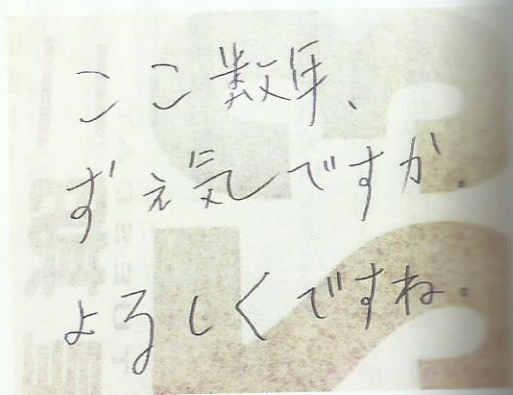 ここ数年、
ずぇ気ですか。
よろしくですね。